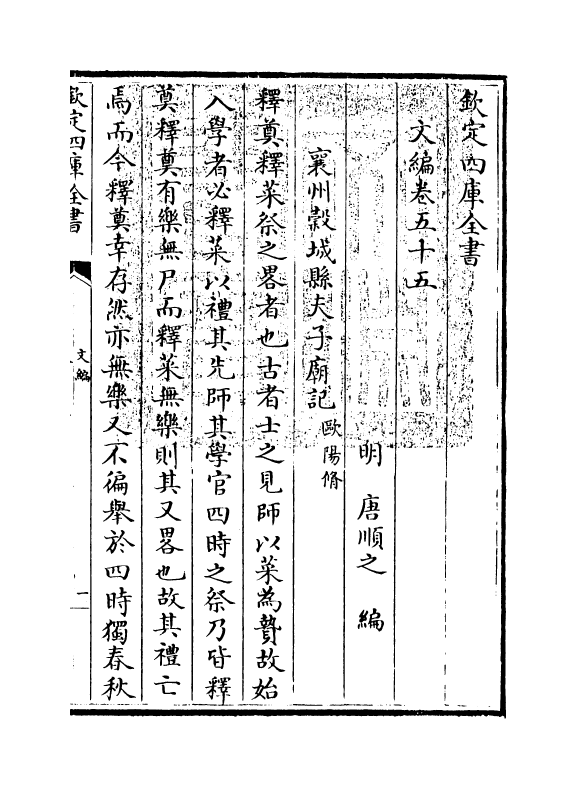 欽定四庫全書
文編卷五十五
明 唐順之 編
襄州穀城縣夫子廟記歐陽脩
釋奠釋菜祭之畧者也古者士之見師以菜為贄故始
入學者必釋菜以禮其先師其學官四時之祭乃皆釋
奠釋奠有樂無尸而釋菜無樂則其又畧也故其禮亡
焉而今釋奠幸存然亦無樂又不徧舉於四時獨春秋
欽定四庫全書
文編
一